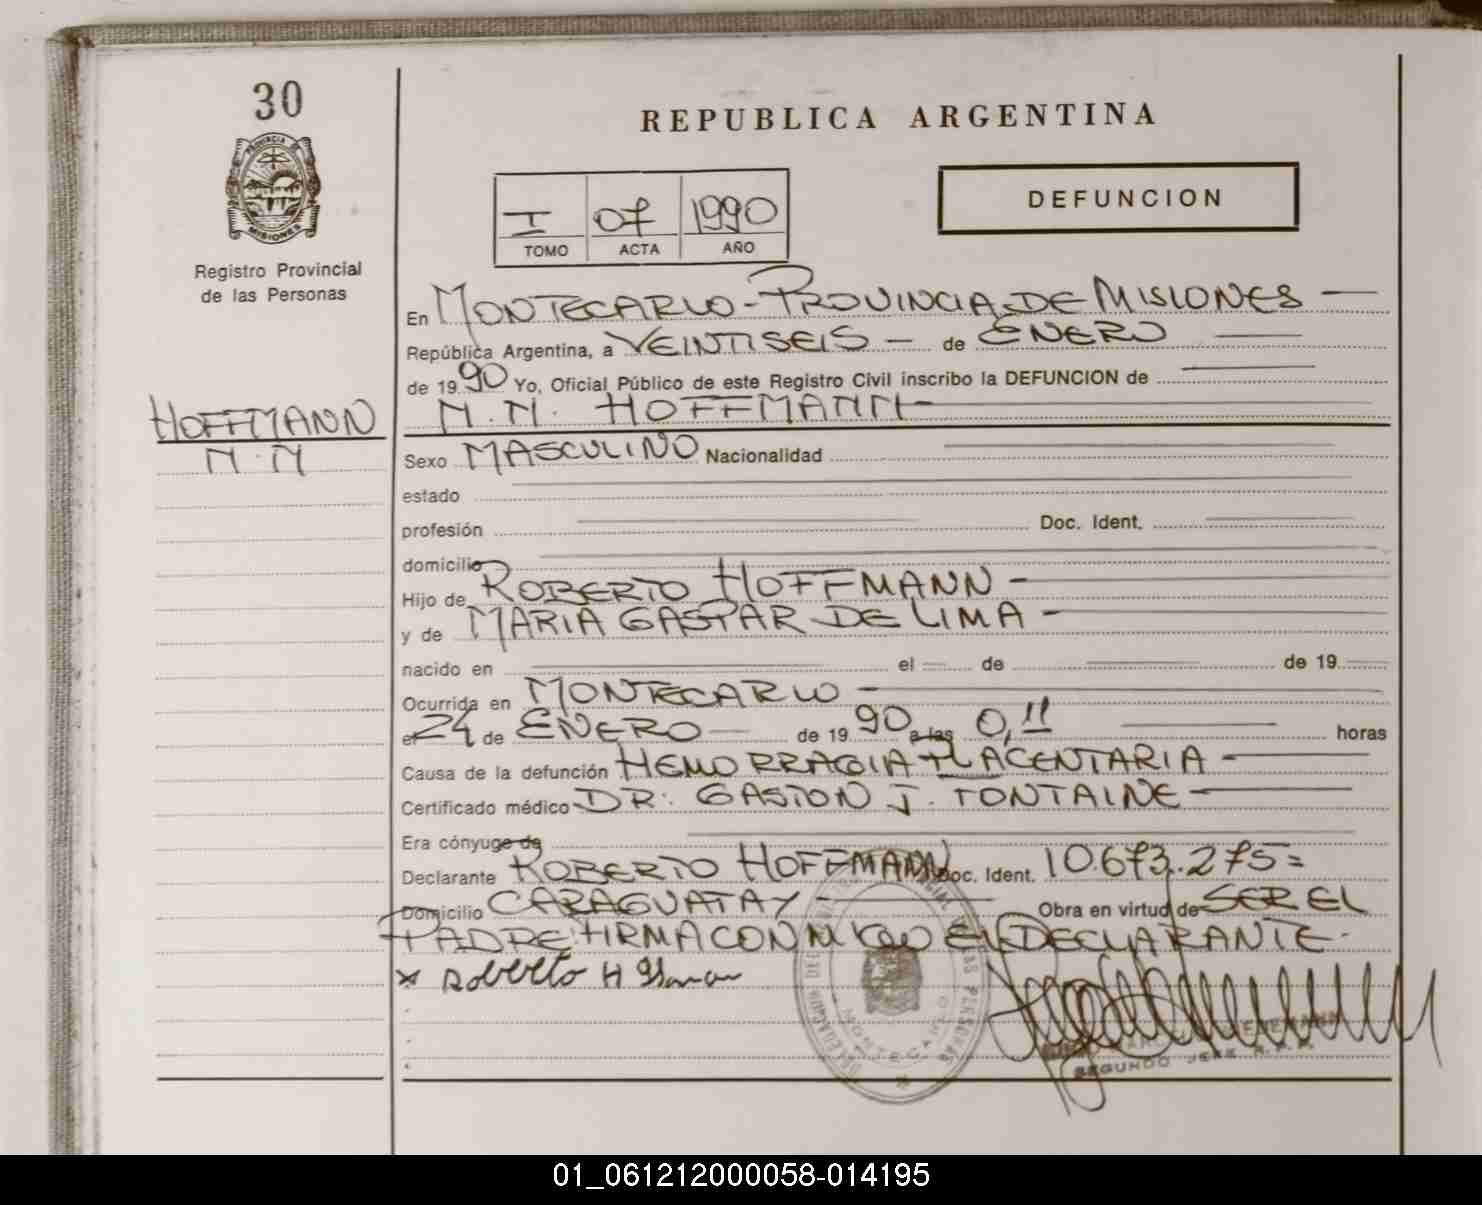 30
PROVINCIA DE
MISIONES
Registro Provincial
de las Personas
HOFFMANN
N.N
REPUBLICA ARGENTINA
I 07 1990
TOMO ACTA AÑO
DEFUNCION
En MONTECARLO - PROVINCIA DE MISIONES —
República Argentina, a VEINTISEIS — de ENERO —
de 1990 Yo, Oficial Público de este Registro Civil inscribo la DEFUNCION de —
N.N. HOFFMANN —
Sexo MASCULINO Nacionalidad —
estado —
profesión — Doc. Ident. —
domicilio —
Hijo de ROBERTO HOFFMANN —
y de MARIA GASPAR DE LIMA —
nacido en — el — de — de 19 —
Ocurrida en MONTECARLO —
el 24 de ENERO — de 1990 a las 0,11 — horas
Causa de la defunción HEMORRAGIA PLACENTARIA —
Certificado médico DR: GASTON J. FONTAINE —
Era cónyuge de —
Declarante ROBERTO HOFFMANN Doc. Ident. 10.673.275=
Domicilio CARAGUATAY — Obra en virtud de SER EL
PADRE: FIRMA CONMIGO EL DECLARANTE.
x Roberto
MONTECARLO
SEGUNDO JEFE R.P.P.
01_061212000058-014195